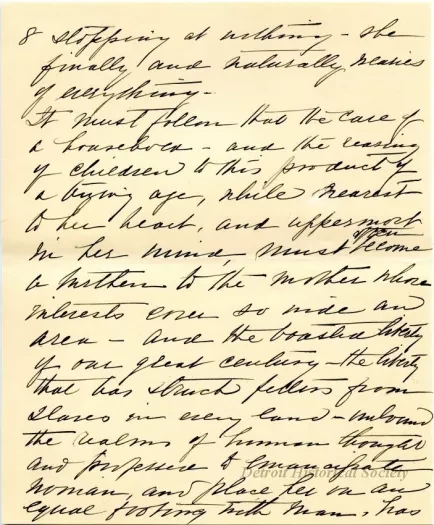 8 stopping at nothing - she
finally and naturally wearies
of everything -
It must follow that the care of
a household - and the rearing
of children to this product of
a trying age, while nearest
to her heart, and uppermost
in her mind, must often become
a burthen to the mother whose
interests cover so wide an
area - and the boasted liberty
of our great century - the liberty
that has struck fetters from
slaves in every land - unbound
the realms of human thought
and professes to emancipate
Detroit Historical Society
woman, and place her on an
equal footing with man, has